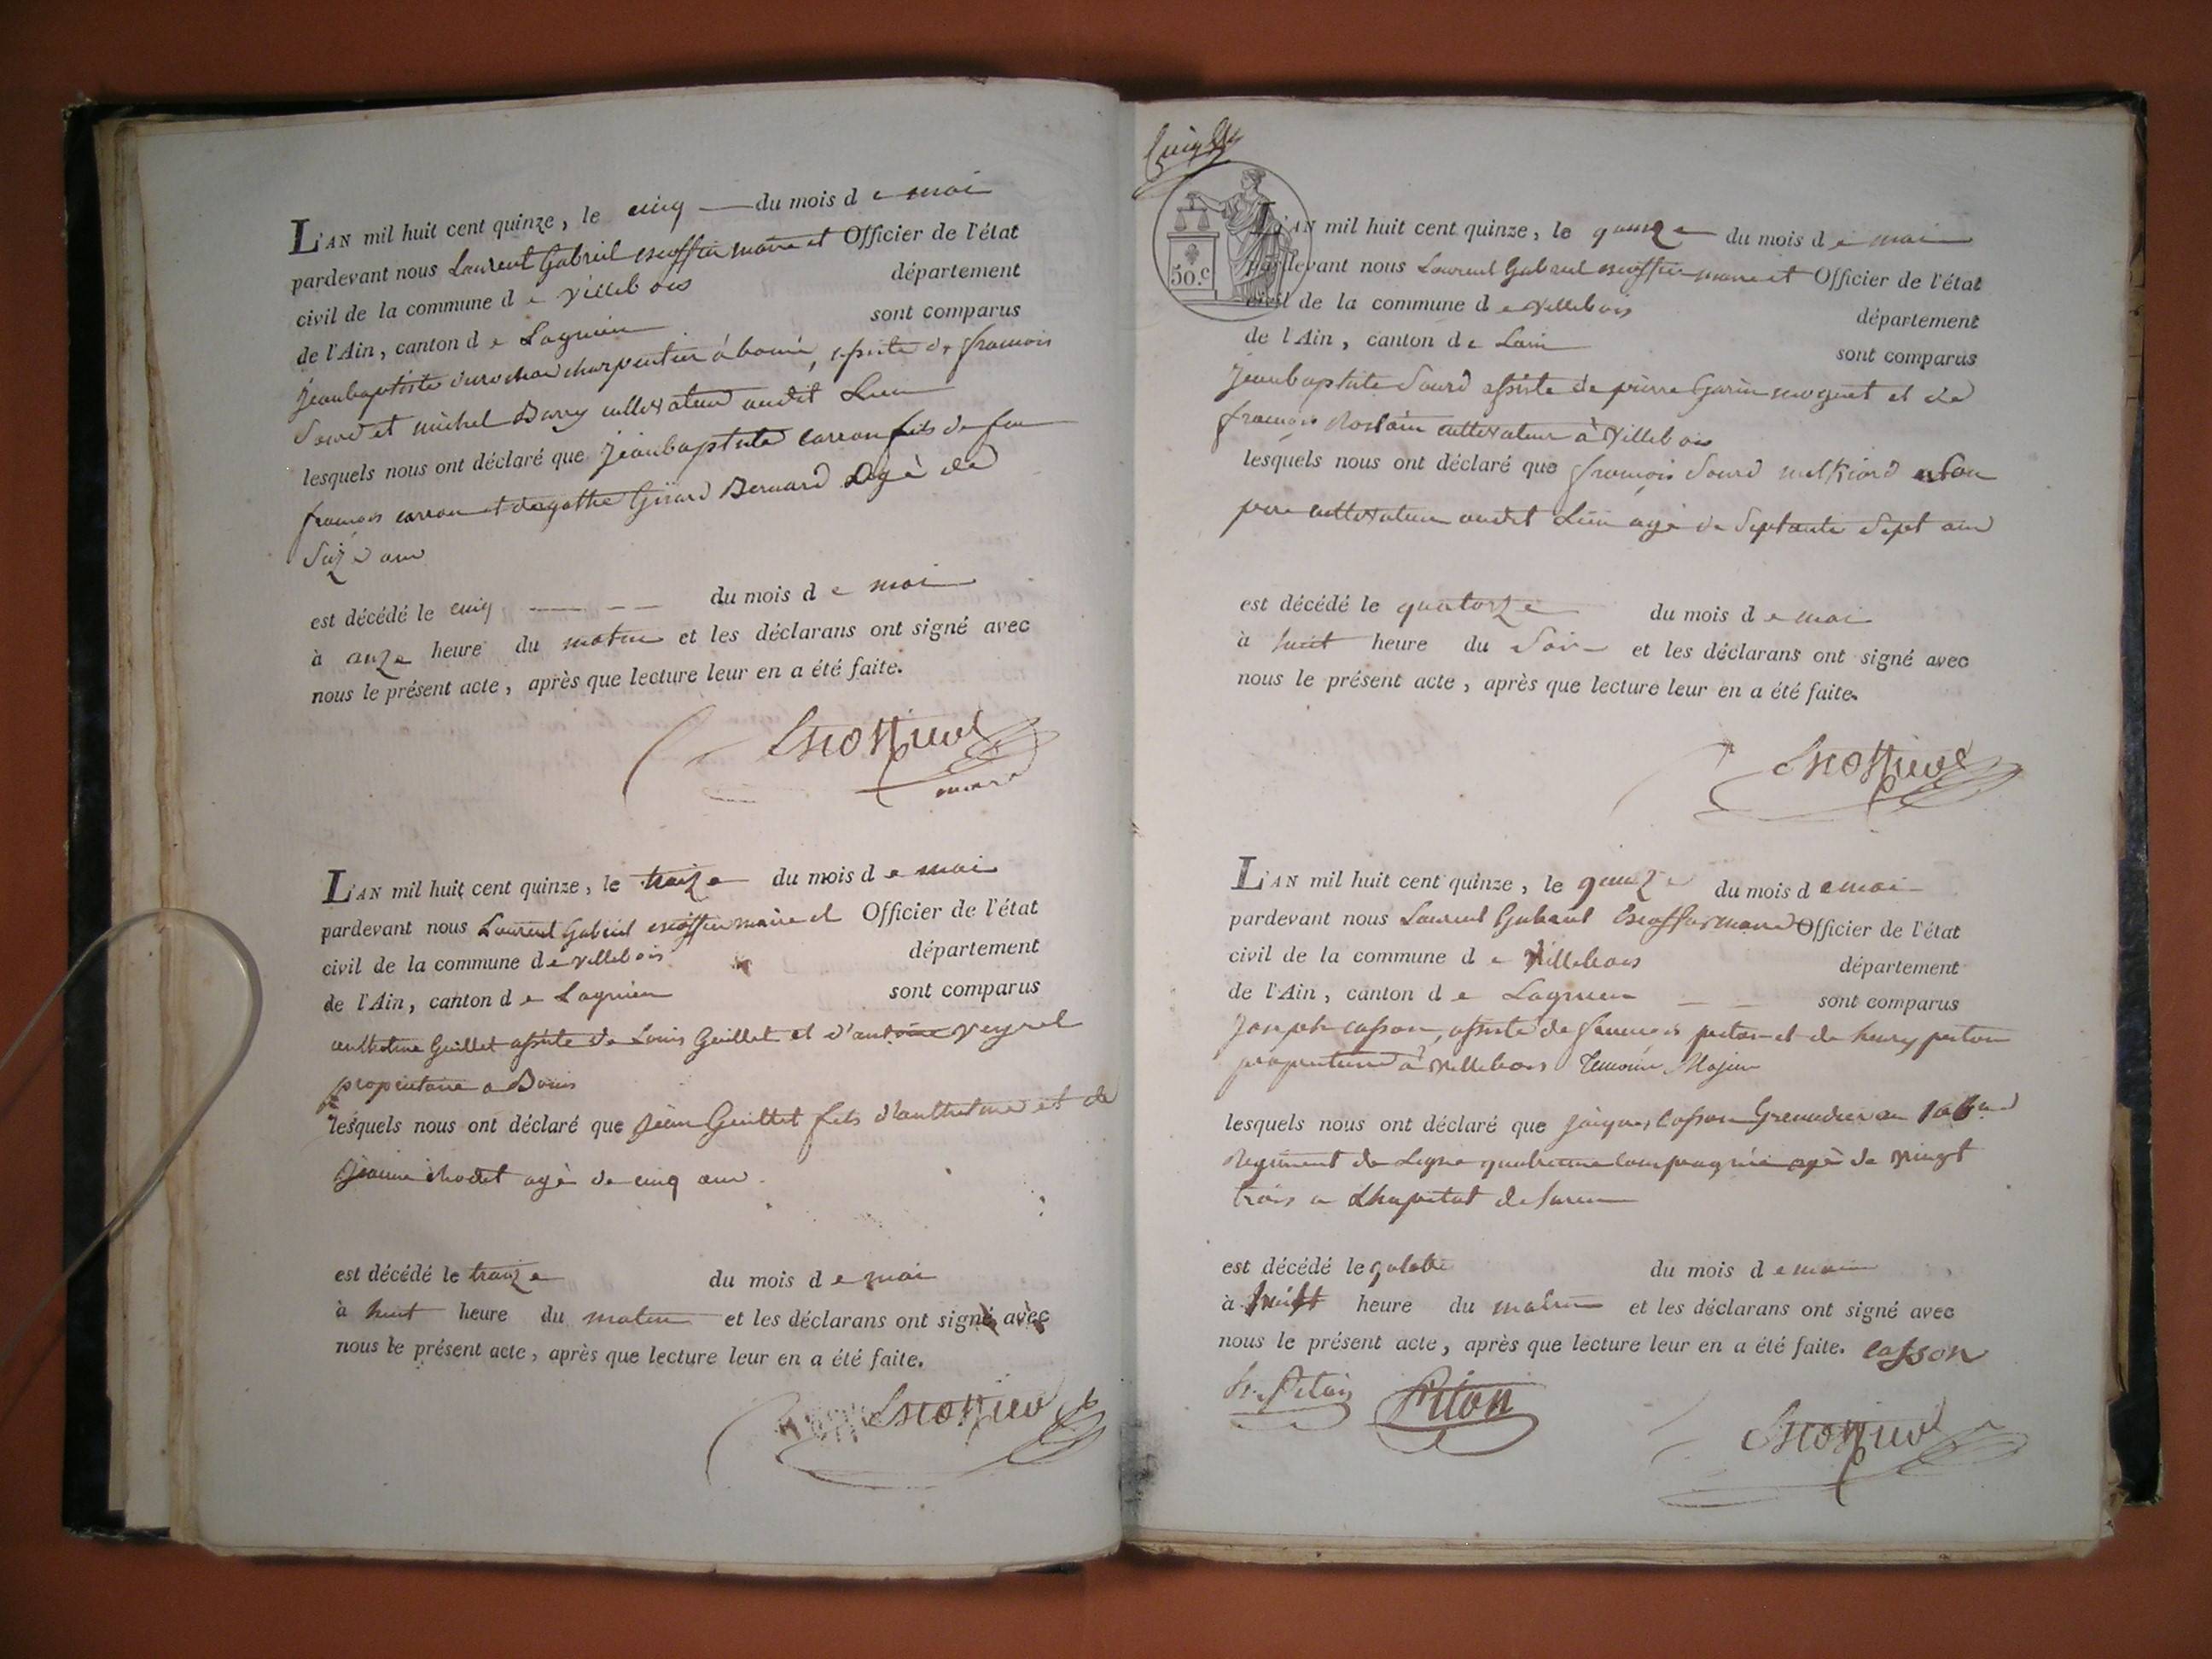 L'AN mil huit cent quinze, le cinq du mois de mai
pardevant nous Laurent Gabriel escoffier maire et Officier de l'état
civil de la commune de villebois département
de l'Ain, canton de Lagnieu sont comparus
jeanbaptiste charpentier à bouis, assisté de francois
Sourd et michel Barry cultivateur audit Lieu
lesquels nous ont déclaré que jeanbaptiste carron fils de feu
francois carron et dagathe Girard Bernard agé de
Seize ans
est décédé le cinq du mois de mai
à onze heure du matin et les déclarans ont signé avec
nous le présent acte, après que lecture leur en a été faite.
Escoffier
maire
L'AN mil huit cent quinze, le treize du mois de mai
pardevant nous Laurent Gabriel escoffier maire et Officier de l'état
civil de la commune de villebois département
de l'Ain, canton de Lagnieu sont comparus
anthelme Guillet assisté de Louis Guillet et d'antoine veyret
propriétaire a Bouis
lesquels nous ont déclaré que jean Guillet fils d'anthelme et de
jeanne chodet agé de cinq ans
est décédé le treize du mois de mai
à huit heure du matin et les déclarans ont signé avec
nous le présent acte, après que lecture leur en a été faite.
Escoffier
50.c
L'AN mil huit cent quinze, le quinze du mois de mai
pardevant nous Laurent Gabriel escoffier maire et Officier de l'état
civil de la commune de villebois département
de l'Ain, canton de Lain sont comparus
jeanbaptiste Sourd assisté de pierre Garin moguet et de
francois Rostain cultivateur à Villebois
lesquels nous ont déclaré que francois Sourd melkiord son
pere cultivateur audit Lieu agé de Septante Sept ans
est décédé le quatorze du mois de mai
à huit heure du Soir et les déclarans ont signé avec
nous le présent acte, après que lecture leur en a été faite.
Escoffier
L'AN mil huit cent quinze, le quinze du mois de mai
pardevant nous Laurent Gabriel Escoffier maire Officier de l'état
civil de la commune de Villebois département
de l'Ain, canton de Lagnieu sont comparus
joseph casson, assisté de francois piton et de henry piton
propriétaire à villebois temoins Majeur
lesquels nous ont déclaré que jacques Casson Grenadier au
Regiment de Ligne quatrieme compagnie agé de vingt
trois a Lhopital de
est décédé le du mois de mai
à huit heure du matin et les déclarans ont signé avec
nous le présent acte, après que lecture leur en a été faite. casson
Piton
Escoffier